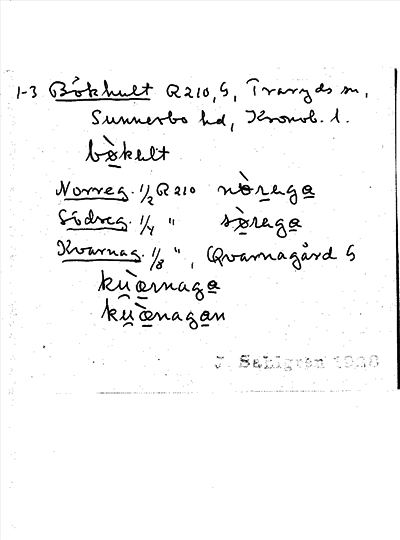 1-3 Bökhult R 210, S, Traryds sn,
Sunnerbo hd, Kronob. l.
bø̀kelt
Norreg. 1/2 R 210 nø̀rega
Södreg. 1/4 " sø̀rega
Kvarnag. 1/8 ", Qvarnagård S
ku̯æ̀rnaga
ku̯æ̀nagan
J Sahlgren 1928